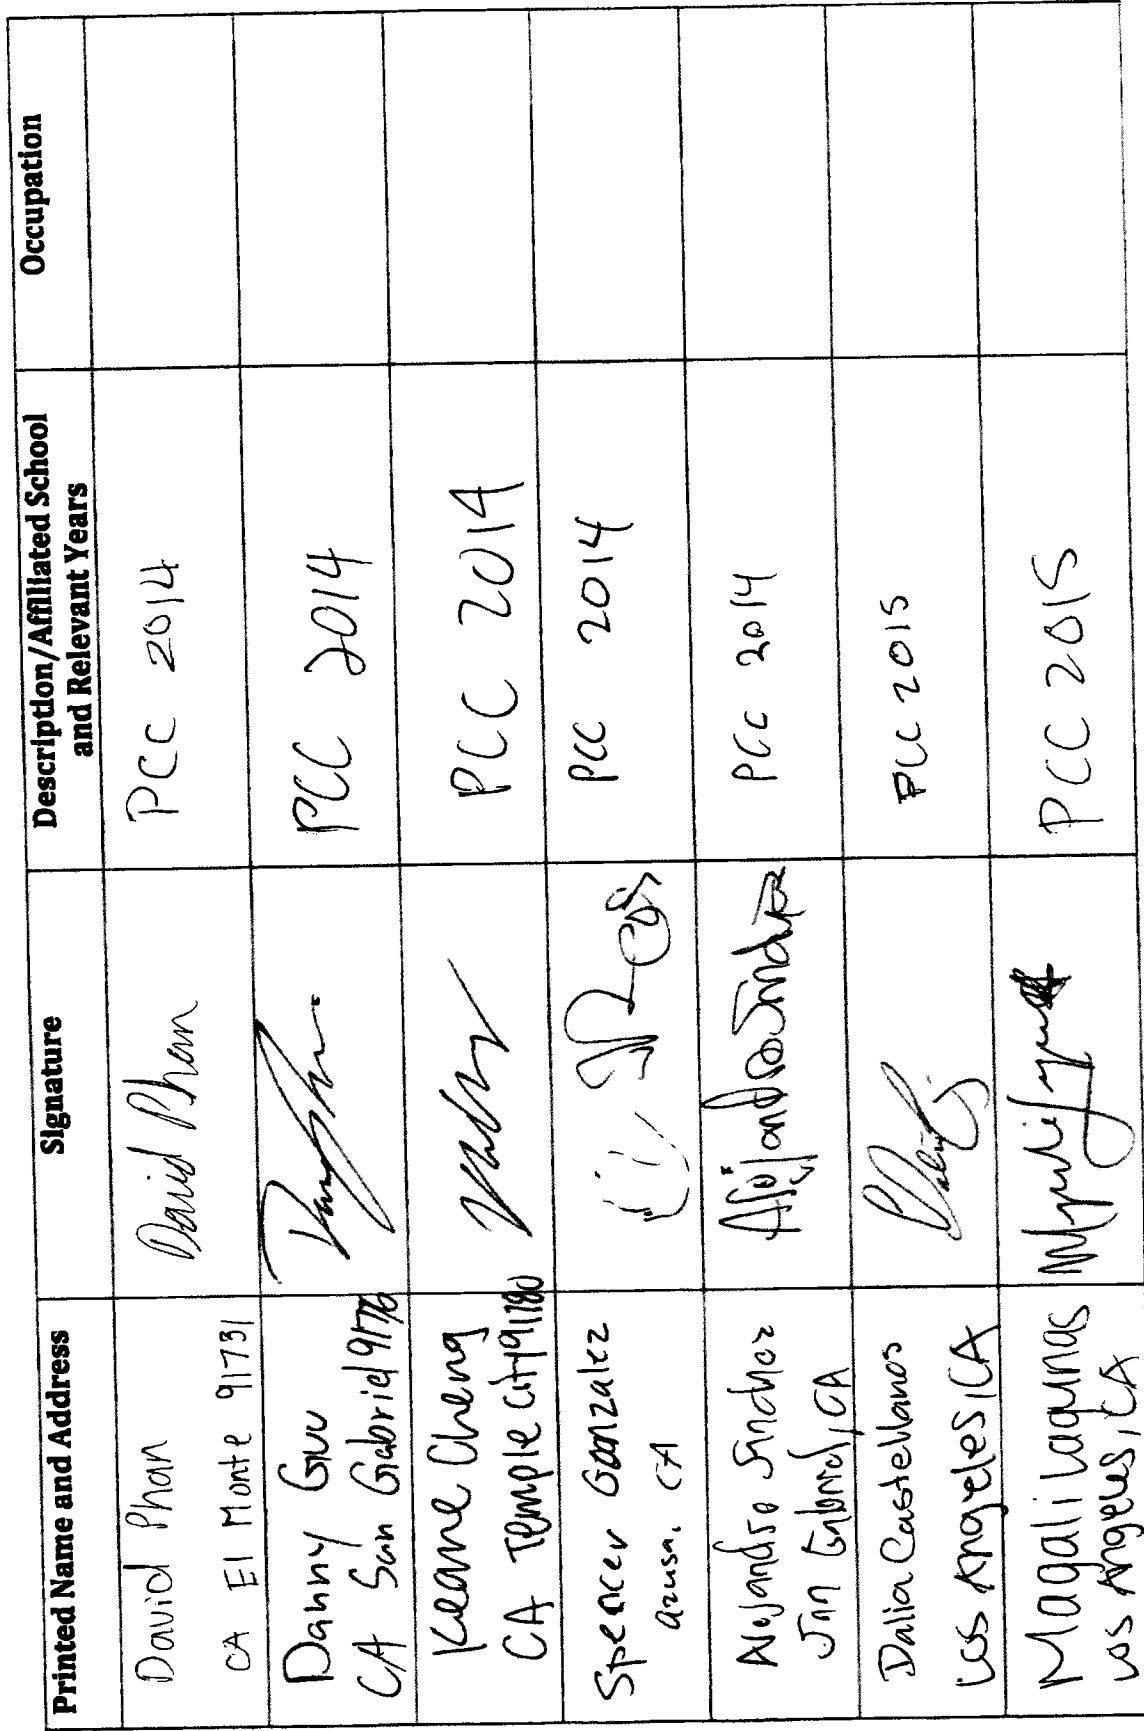 Printed Name and Address
Signature
Description/Affiliated School
and Relevant Years
Occupation
David Phan
CA El Monte 91731
David Phan
PCC 2014
Danny Guu
CA San Gabriel 91776
PCC 2014
Keane Cheng
CA Temple City 91780
PCC 2014
Spencer Gonzalez
azusa, CA
PCC 2014
Alejandro Sanchez
San Gabriel, CA
Alejandro Sanchez
PCC 2014
Dalia Castellanos
Los Angeles, CA
PCC 2015
Magali Lagunas
Los Angeles, CA
PCC 2015